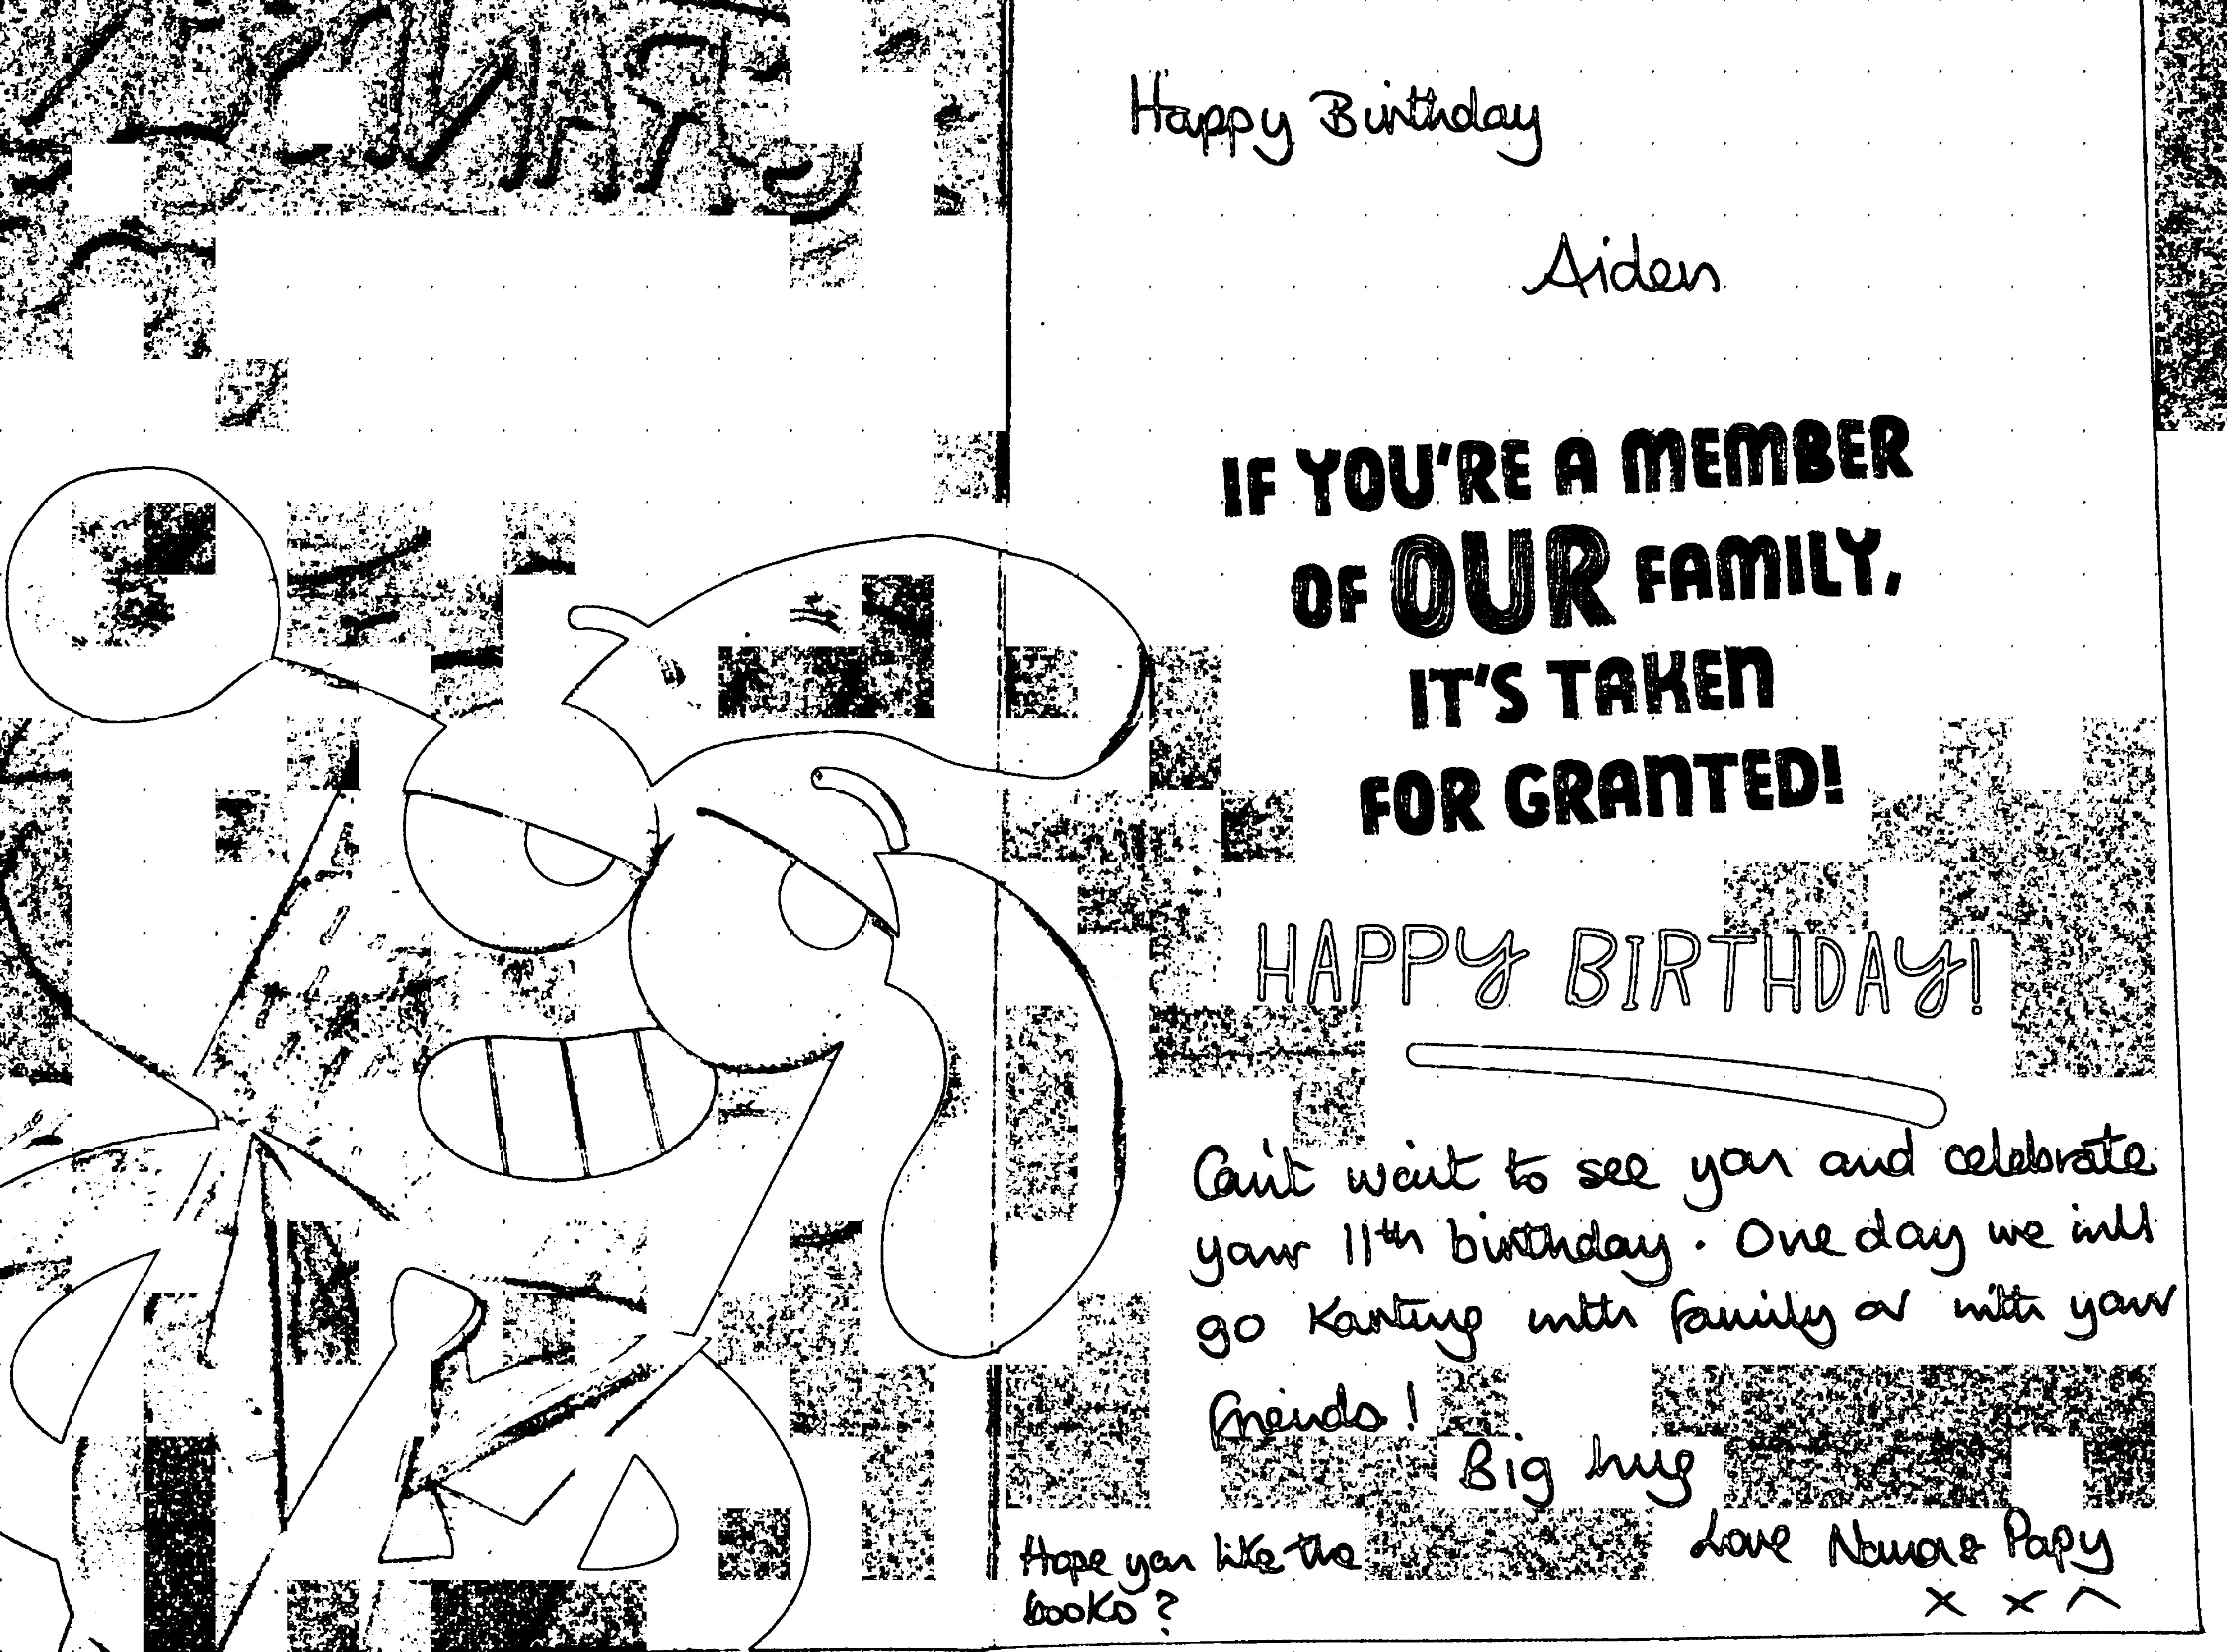 Happy Birthday
Aiden
IF YOU'RE A MEMBER
OF OUR FAMILY,
IT'S TAKEN
FOR GRANTED!
HAPPY BIRTHDAY!
Can't wait to see you and celebrate
your 11th birthday. One day we will
go Karting with family or with your
friends!
Big hug
Love Nana & Papy
x x x
Hope you like the
books?